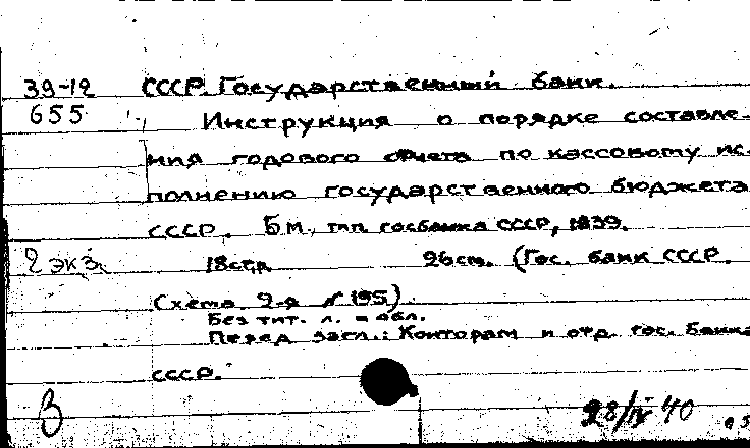 39-12 СССР. Государственный банк.
655 Инструкция о порядке составле-
ния годового отчета по кассовому ис-
полнению государственного бюджета
СССР. Б.М., тип. госбанка СССР, 1939.
2 экз. 18 стр. 26 см. (Гос. банк СССР.
Схема 9-я № 195).
Без тит. л. и обл.
Перед загл.: Конторам и отд. гос. Банка
СССР.
В 28/IV 40